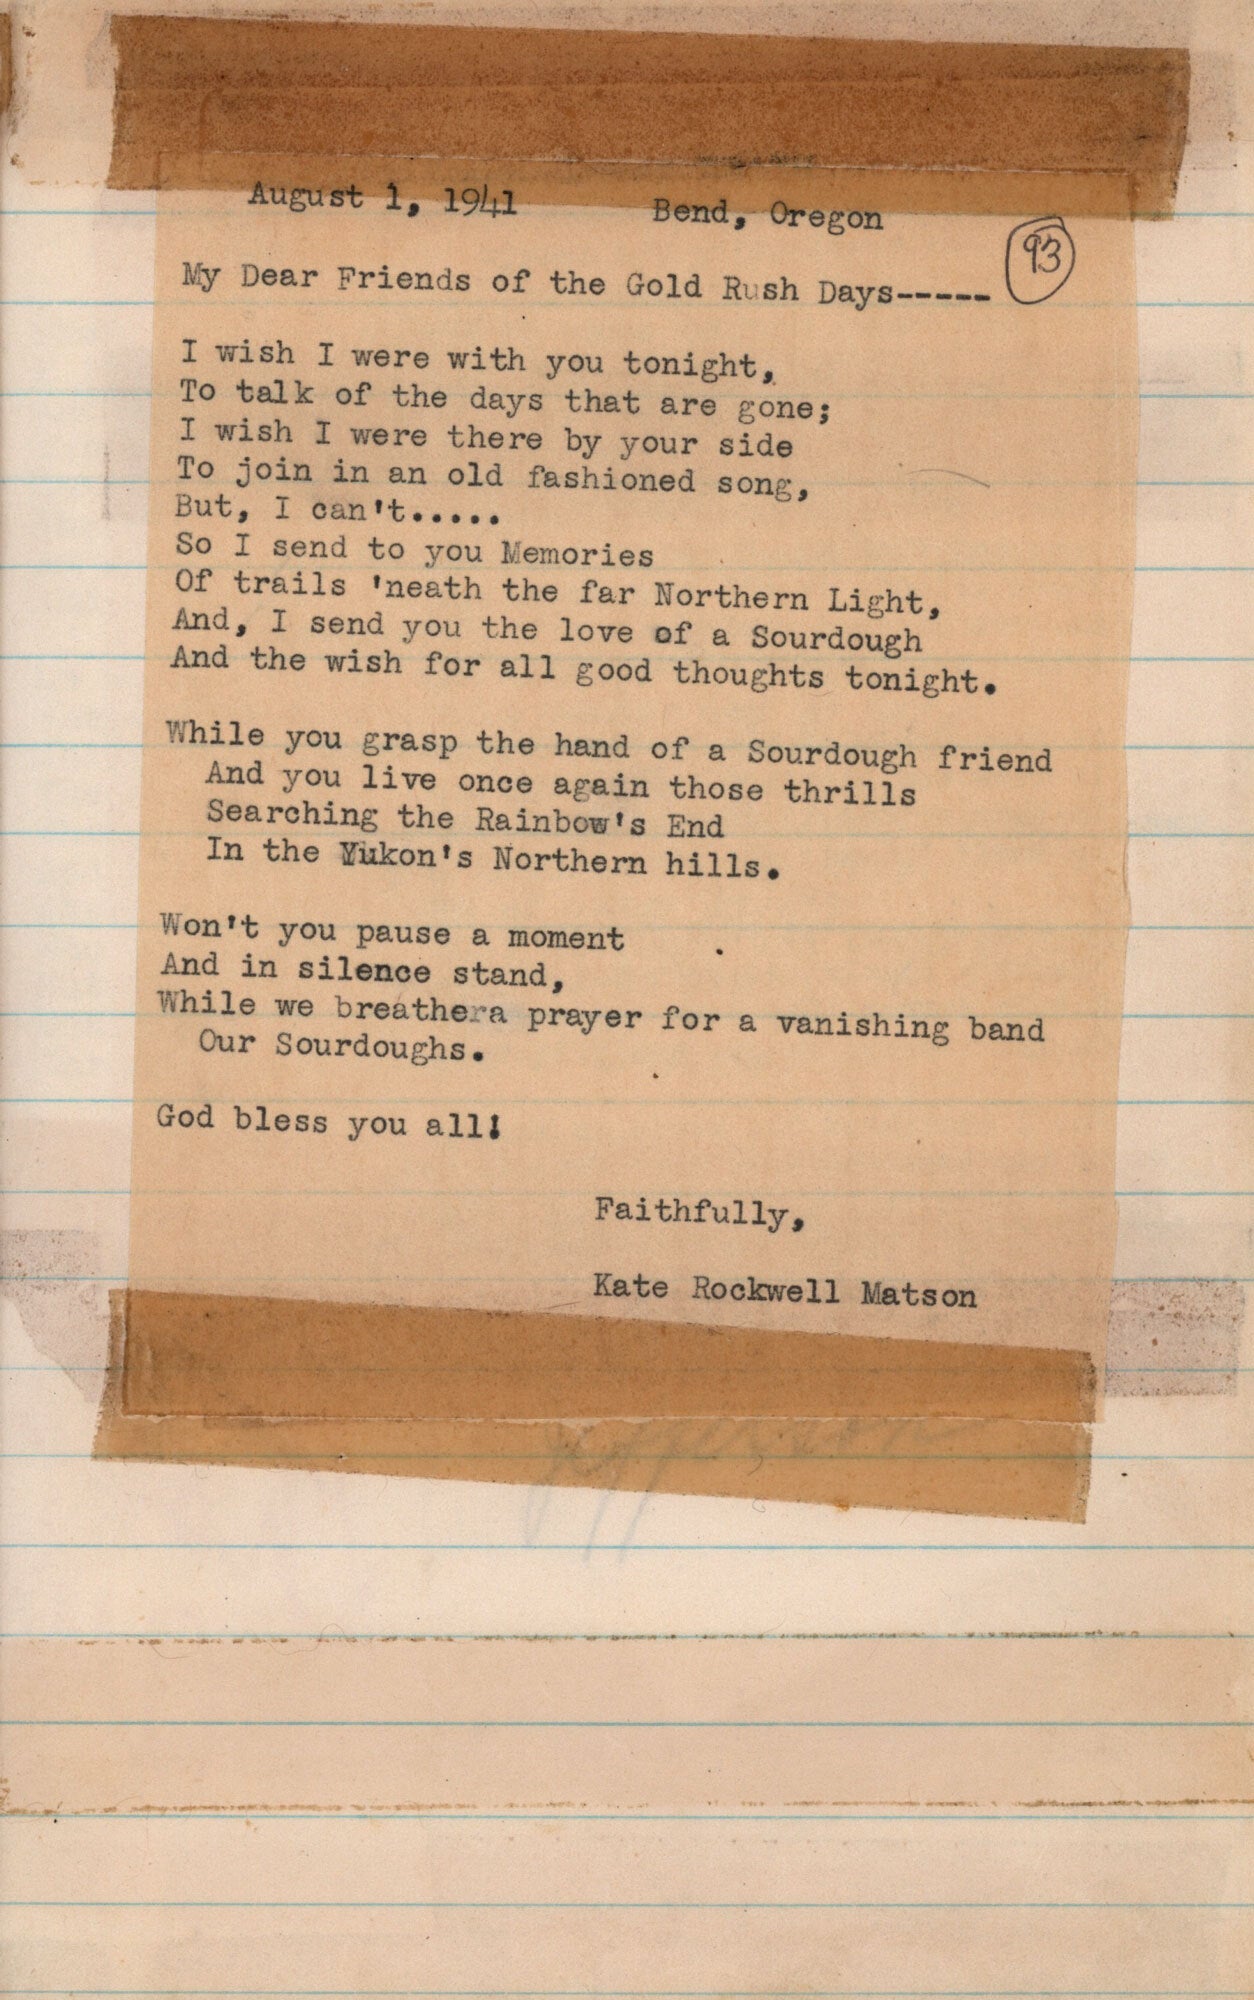 August 1, 1941 Bend, Oregon
93
My Dear Friends of the Gold Rush Days------
I wish I were with you tonight,
To talk of the days that are gone;
I wish I were there by your side
To join in an old fashioned song,
But, I can't.....
So I send to you Memories
Of trails 'neath the far Northern Light,
And, I send you the love of a Sourdough
And the wish for all good thoughts tonight.
While you grasp the hand of a Sourdough friend
And you live once again those thrills
Searching the Rainbow's End
In the Yukon's Northern hills.
Won't you pause a moment
And in silence stand,
While we breathera prayer for a vanishing band
Our Sourdoughs.
God bless you all!
Faithfully,
Kate Rockwell Matson